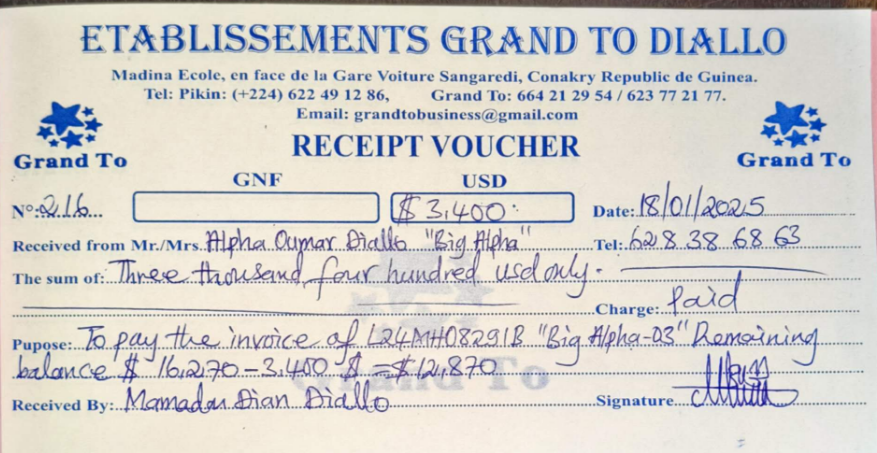 ETABLISSEMENTS GRAND TO DIALLO
Madina Ecole, en face de la Gare Voiture Sangaredi, Conakry Republic de Guinea.
Tel: Pikin: (+224) 622 49 12 86, Grand To: 664 21 29 54 / 623 77 21 77.
Email: grandtobusiness@gmail.com
Grand To RECEIPT VOUCHER Grand To
GNF USD
N°: 216 $ 3,400 Date: 18/01/2025
Received from Mr./Mrs. Alpha Oumar Diallo "Big Alpha" Tel: 628 38 68 63
The sum of: Three thousand four hundred usd only.
Charge: Paid
Pupose: To pay the invoice of L24MH08291B "Big Alpha-03" Remaining
balance $ 16,270 - 3.400 $ = $ 12,870
Received By: Mamadou Dian Diallo Signature
Grand To